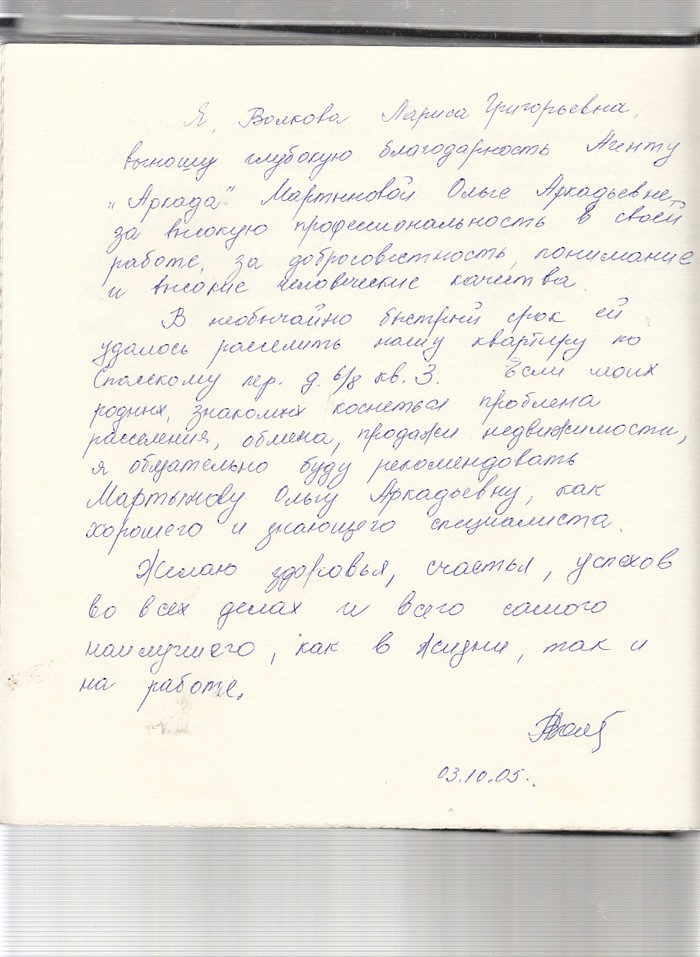 Я, Волкова Лариса Григорьевна,
выношу глубокую благодарность Агенту
„Аркада" Мартыновой Ольге Аркадьевне,
за высокую профессиональность в своей
работе, за добросовестность, понимание
и высокие человеческие качества.
В необычайно быстрый срок ей
удалось расселить нашу квартиру по
Спасскому пер. д. 6/8 кв. 3. Если моих
родных, знакомых коснеться проблема
расселения, обмена, продажи недвижимости,
я обязательно буду рекомендовать
Мартынову Ольгу Аркадьевну, как
хорошего и знающего специалиста.
Желаю здоровья, счастья, успехов
во всех делах и всего самого
наилучшего, как в жизни, так и
на работе.
03.10.05.